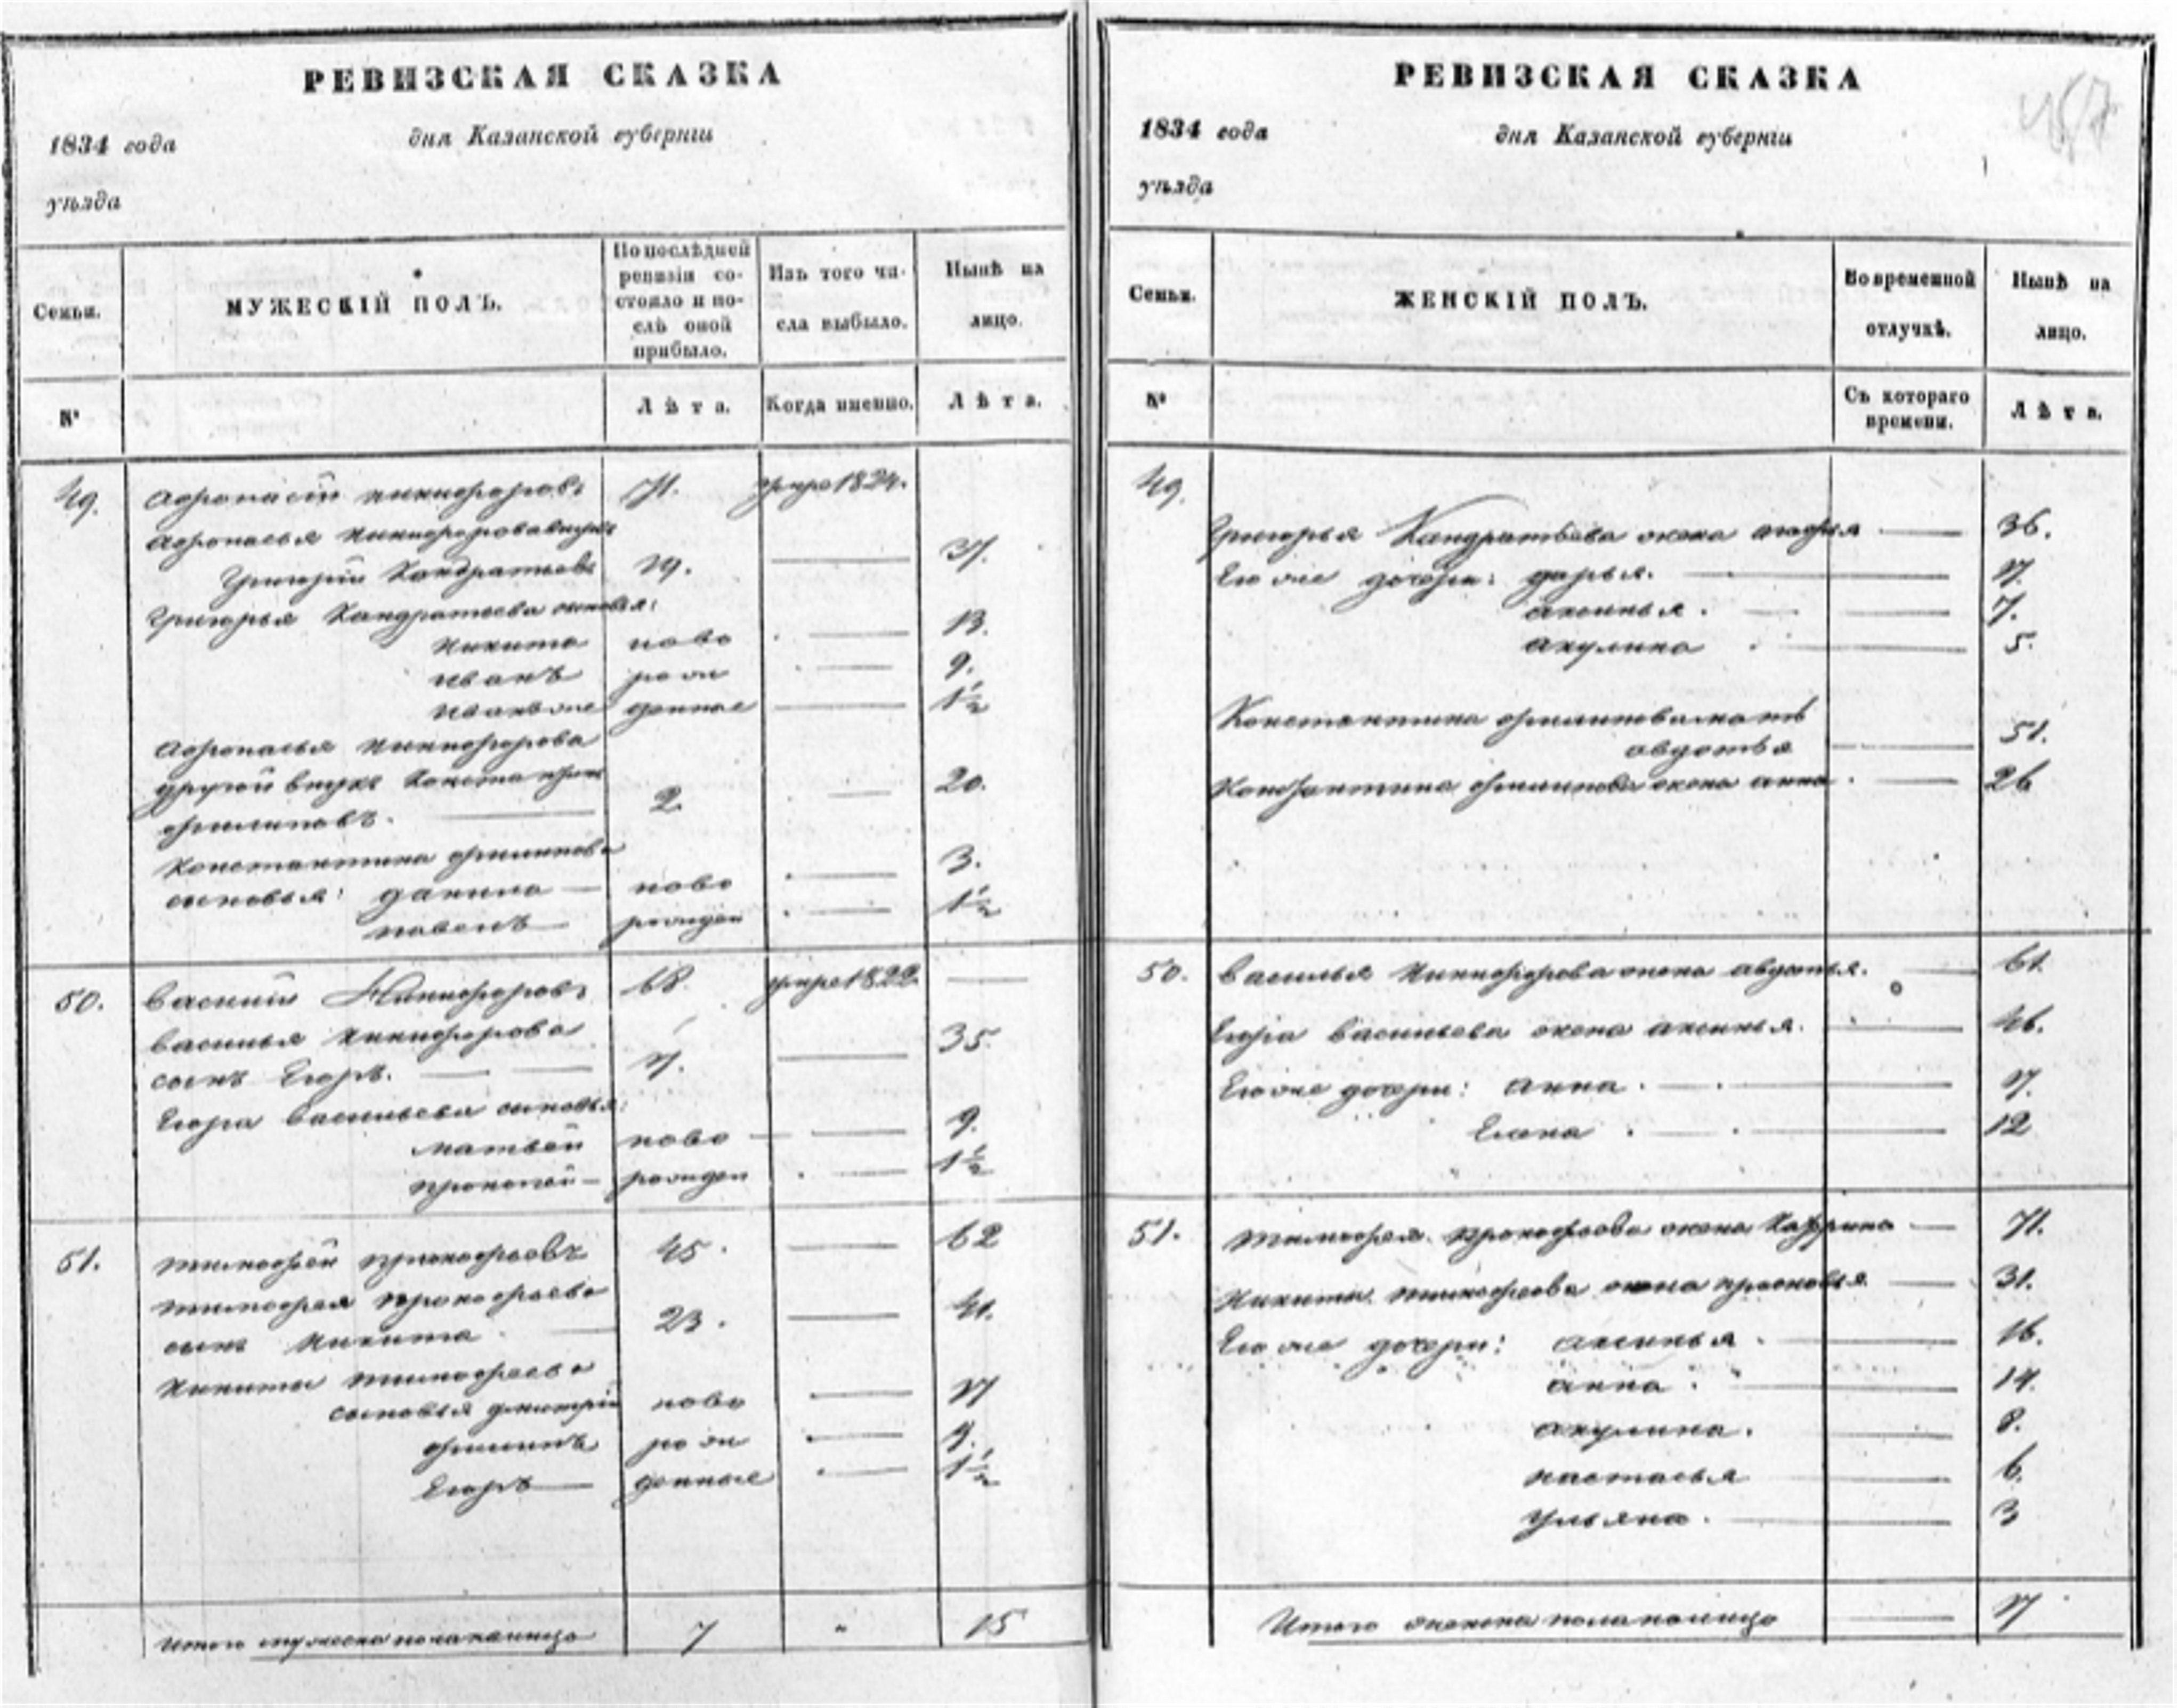 РЕВИЗСКАЯ СКАЗКА
1834 года
дня Казанской губерніи
уѣзда
Семьи.
МУЖЕСКІЙ ПОЛЪ.
По послѣдней ревизіи состояло и послѣ оной прибыло.
Изъ того числа выбыло.
Нынѣ на лицо.
№
Лѣта.
Когда именно.
Лѣта.
49. Афонасій Никифоровъ умре 1824.
Афонасья Никифорова внукъ
Григорій Кондратьевъ
Григорья Кандратьева сыновья:
Никита ново 13.
Иванъ рож 9.
Иванъ же денные 1½
Афонасья Никифорова
другой внукъ Константинъ 2 20.
Филиповъ.
Константина Филипова 3.
сыновья: Данило ново
Павелъ рожден 1½
50. Василій Никифоровъ 68. умре 1822.
Василья Никифорова 35.
сынъ Егоръ.
Егора Васильева сыновья:
Матвей ново 9.
Прокопей рожден 1½
51. Тимофей Прокофьевъ 45. 62
Тимофея Прокофьева
сынъ Никита 23. 41.
Никиты Тимофеева
сыновья Дмитрій ново 17
Филипъ рож 9.
Егоръ денные 1½
Итого мужеска пола налицо 7 " 15
РЕВИЗСКАЯ СКАЗКА
1834 года
дня Казанской губерніи
уѣзда
Семьи.
ЖЕНСКІЙ ПОЛЪ.
Во временной отлучкѣ.
Нынѣ на лицо.
№
Съ котораго времени.
Лѣта.
49.
Григорья Кандратьева жена Агафья 36.
Ево же дочери: Дарья. 17.
Аксинья. 7.
Акулина 5.
Константина Филипова мать
Авдотья 51.
Константина Филипова жена Анна 26
50. Василья Никифорова жена Авдотья. 61
Егора Васильева жена Аксинья. 46.
Ево же дочери: Анна. 17.
Елена 12
51. Тимофея Прокофьева жена 71.
Никиты Тимофеева жена Прасковья 31.
Ево же дочери: Аксинья. 16.
Анна 14.
Акулина. 8.
Настасья 6.
Ульяна. 3
Итого женска пола налицо 17